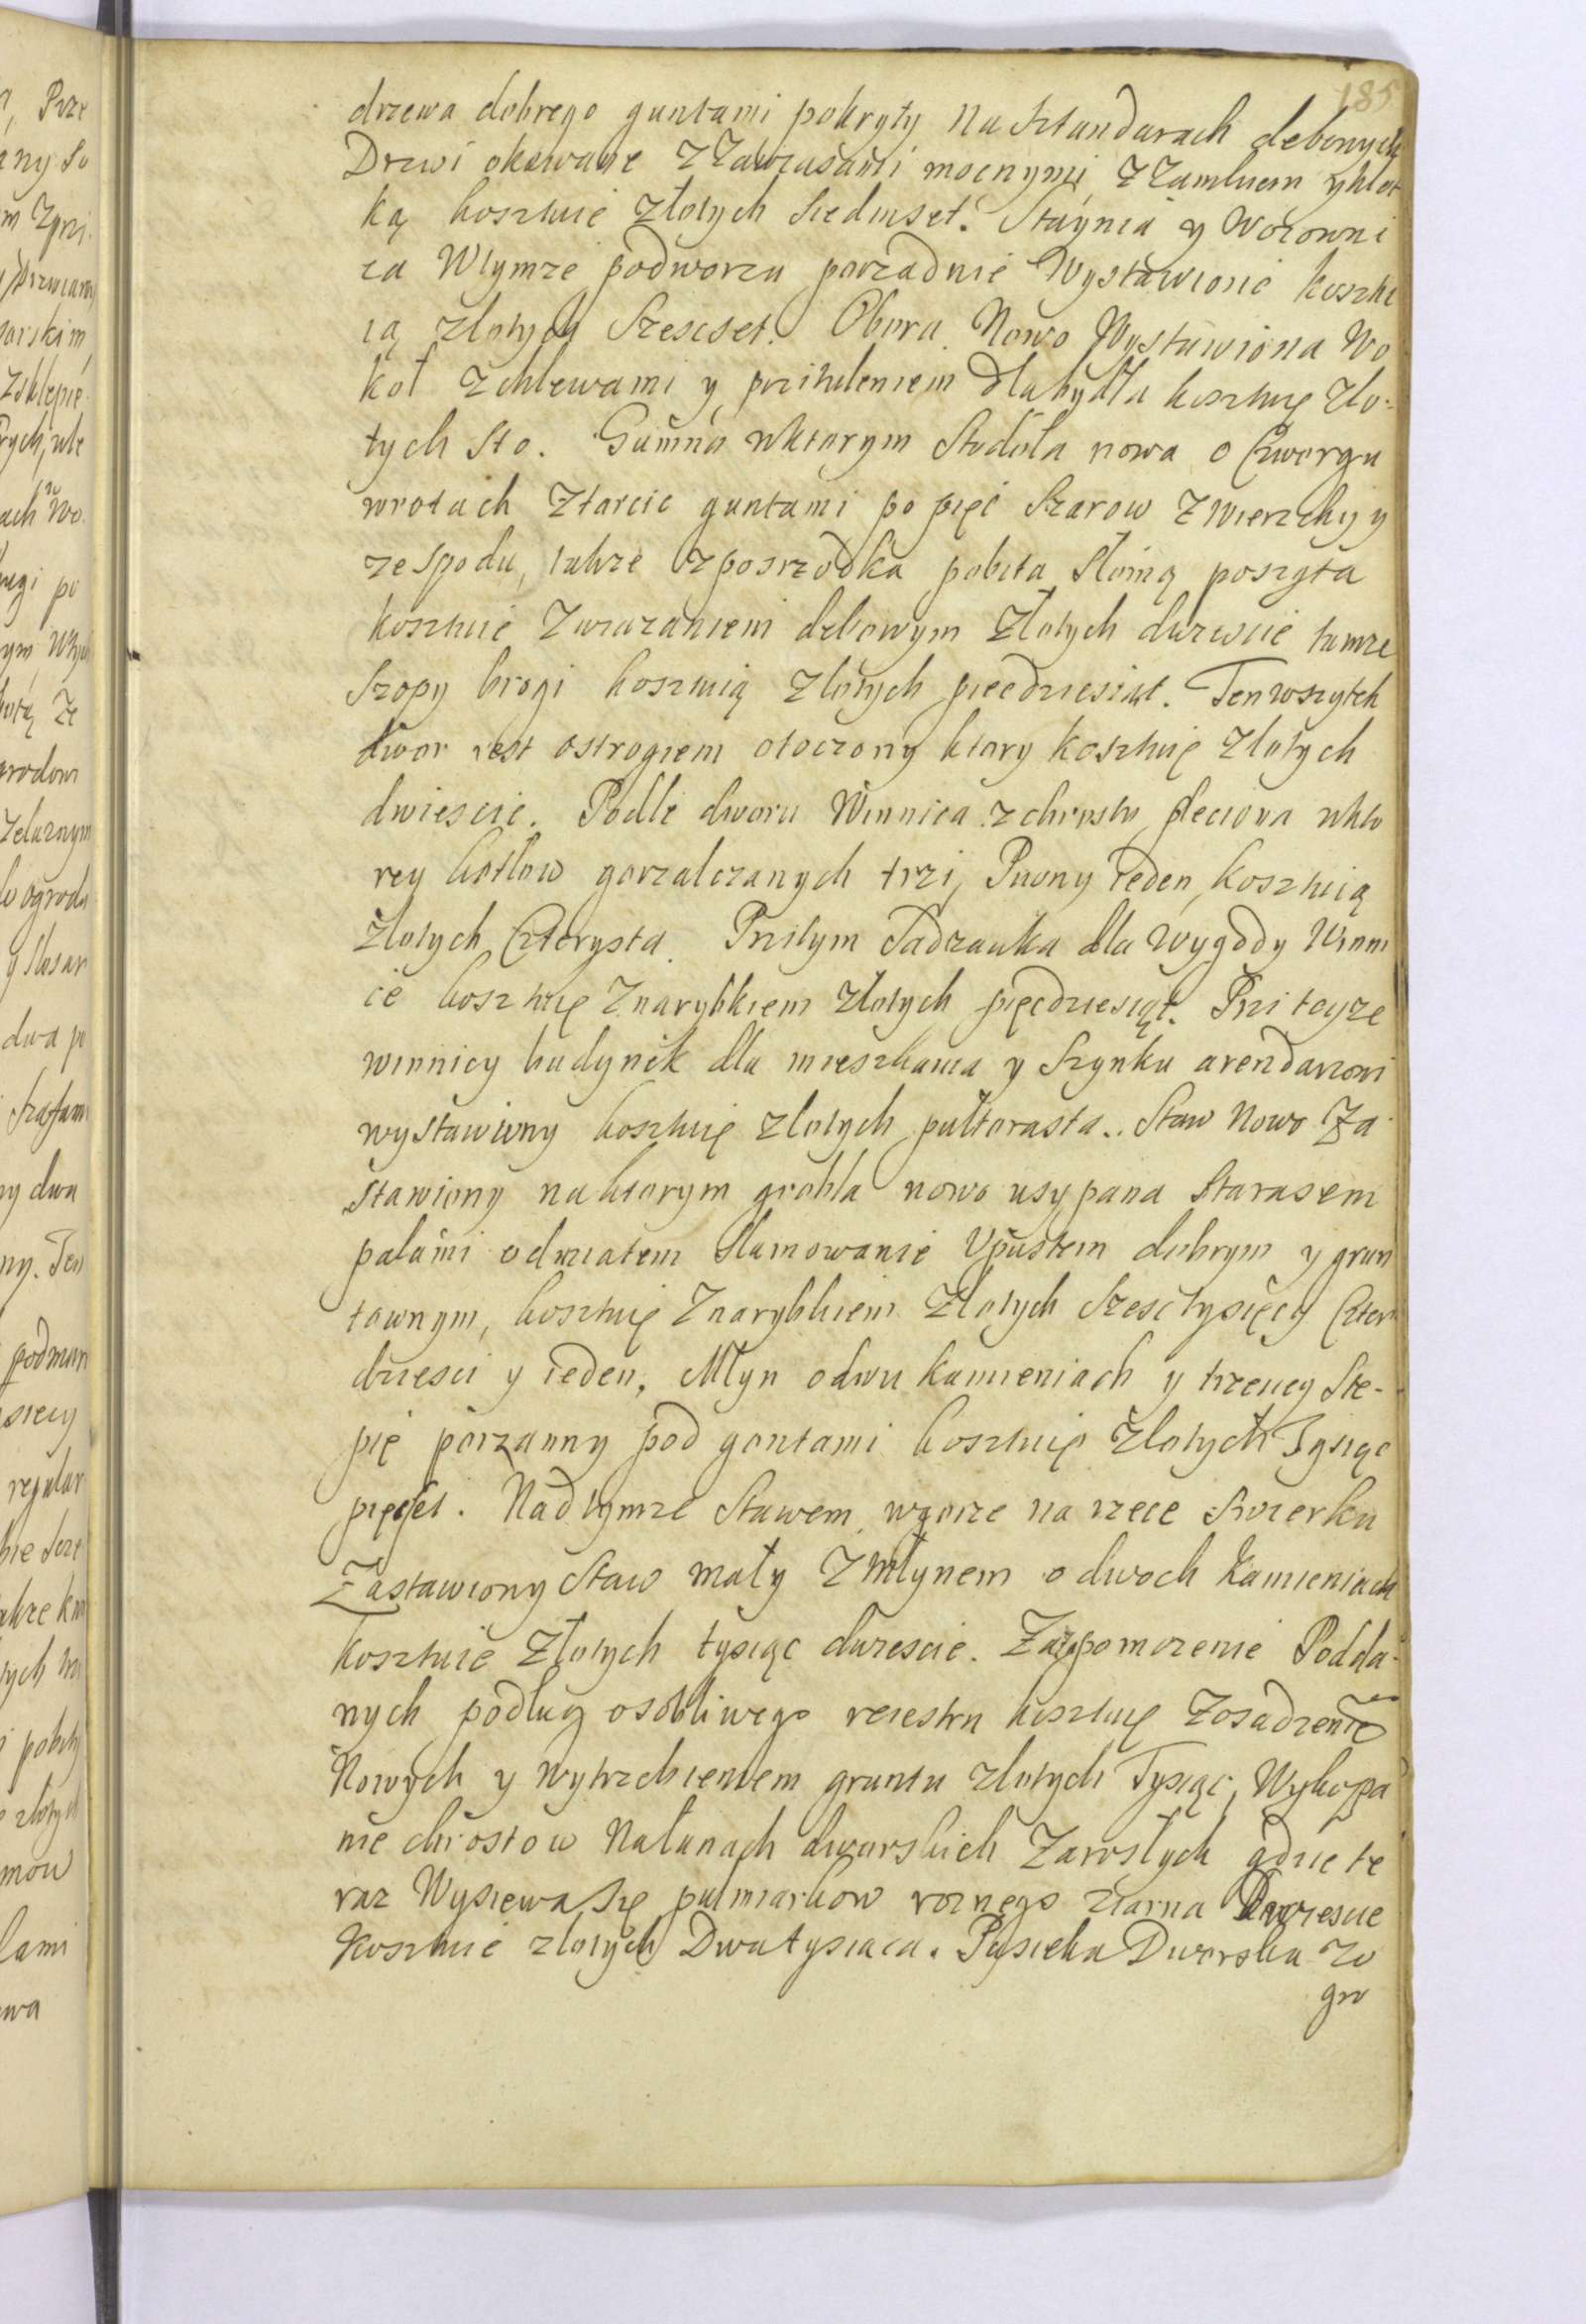 185
drzewa dobrego guntami pokryty Na sztandarach debowych
Drzwi okowane Z Zawiasami mocnymi Z Zamkiem y klot
ką kosztuie Złotych Siedmset. Stáynia y Wozowni
ca Wtymże podworzu porządnie Wystawione kosztu
ią złotych Szescset. Obora Nowo Wystawiona Wo
koł Zchlewami y przituleniem dla bydła kosztuię Zło-
tych Sto. Gumno wktorym Stodoła nowa o Czworgu
wrotach Ztarcic guntami po pięć Szarow Zwierzchy y
ze Spodu, takze zposrzodka pobita Słomą poszyta
kosztuie Związaniem dębowym Złotych dwiescie tamże
Szopy brogi kosztuią Złotych piecdziesiąt. Ten wszytek
dwor iest ostrogiem otoczony ktory kosztuię Złotych
dwiescie. Podle dworu Winnica z chrostu pleciona wkto
rey kotlow gorzalczanych trzi, Piwny ieden, kosztuią
Złotych Czterysta. Przitym Sadzawka dla Wygody Winni
ce kosztuię Znarybkiem Złotych pięcdziesiąt. Przi teyze
winnicy budynek dla mieszkania y Szynku arendarzowi
wystawiony kosztuię złotych pułtorasta. Staw Nowo Za
stawiony naktorym grobla nowo usypana Starasem
palami odmiatem Stamowanie Upustem dobrym y grun
townym, kosztuię Znarybkiem Złotych Szesc tysięcy Czter
dziesci y ieden. Młyn odwu kamieniach y trzeciey Stę-
pie porzanny pod gontami kosztuię Złotych Tysiąc
pięcset. Nadtymże Stawem wgorze na rzece
Zastawiony Staw mały Zmłynem o dwoch kamieniach
kosztuie Złotych tysiąc dwiescie. Zapomozenie Podda-
nych podług osobliwego reiestru kosztuię Zosadzenie
Nowych y wytrzebieniem gruntu złotych Tysiąc, Wykopa
nie chrostow Nałanach dworskich Zarosłych gdzie te
raz Wysiewa Się pułmiarkow roznego ziarna Dwiescie
Kosztuie złotych Dwatysiaca. Pasieka Dworska Zo
gro